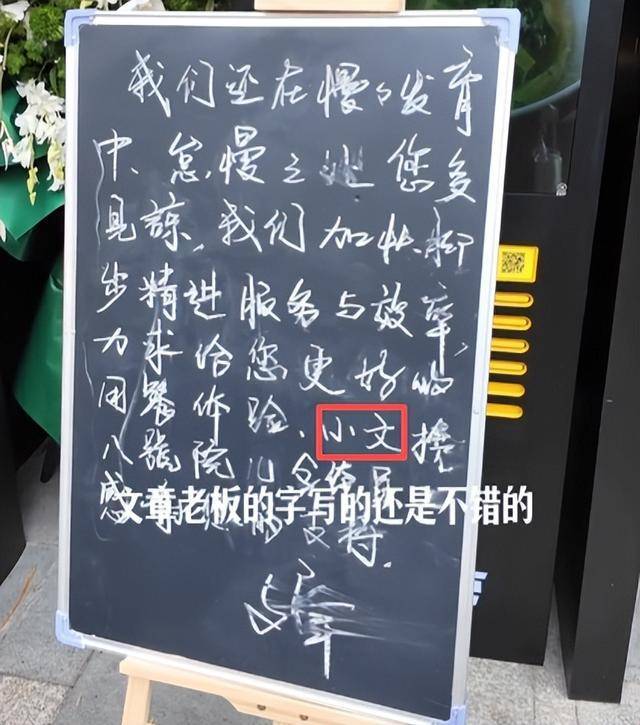 我们还在慢々发育
中、怠慢之处您多
见谅,我们加快脚
步精进服务与效率,
力求给您更好的
用餐体验、小文携
八號院儿全体员
感谢您的支持.
文章老板的字写的还是不错的